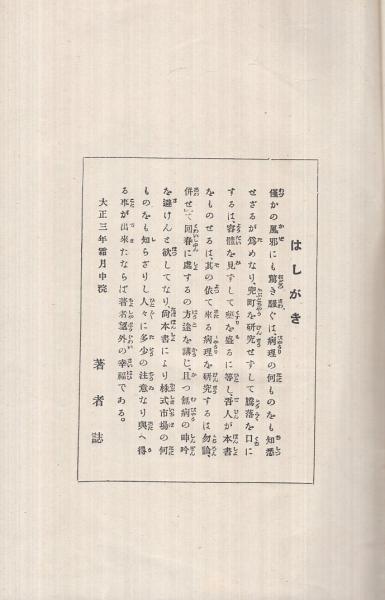 はしがき
僅かの風邪にも驚き騒ぐは、病理の何ものをも知悉
せざるが為めなり、兜町を研究せずして騰落を口に
するは、容體を見ずして藥を盛るに等し、吾人が本書
をものせるは、其の依て來る病理を研究するは勿論、
併せて回春に處するの方途を講じ、且つ無病の呻吟
を避けんと欲してなり、尚本書により株式市場の何
ものをも知らざりし人々に多少の注意なり與へ得
る事が出來たならば著者望外の幸福である。
大正三年霜月中浣
著者誌